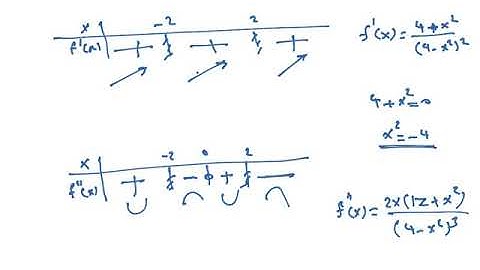 x -2 2
f'(x) + ⨯ + ⨯ +
↗ ↗ ↗
f'(x) = (4+x²)/(4-x²)²
4+x²=0
x²=-4
x -2 0 2
f''(x) + ⨯ - 0 + ⨯ -
∪ ∩ ∪ ∩
f''(x) = 2x(12+x²)/(4-x²)³